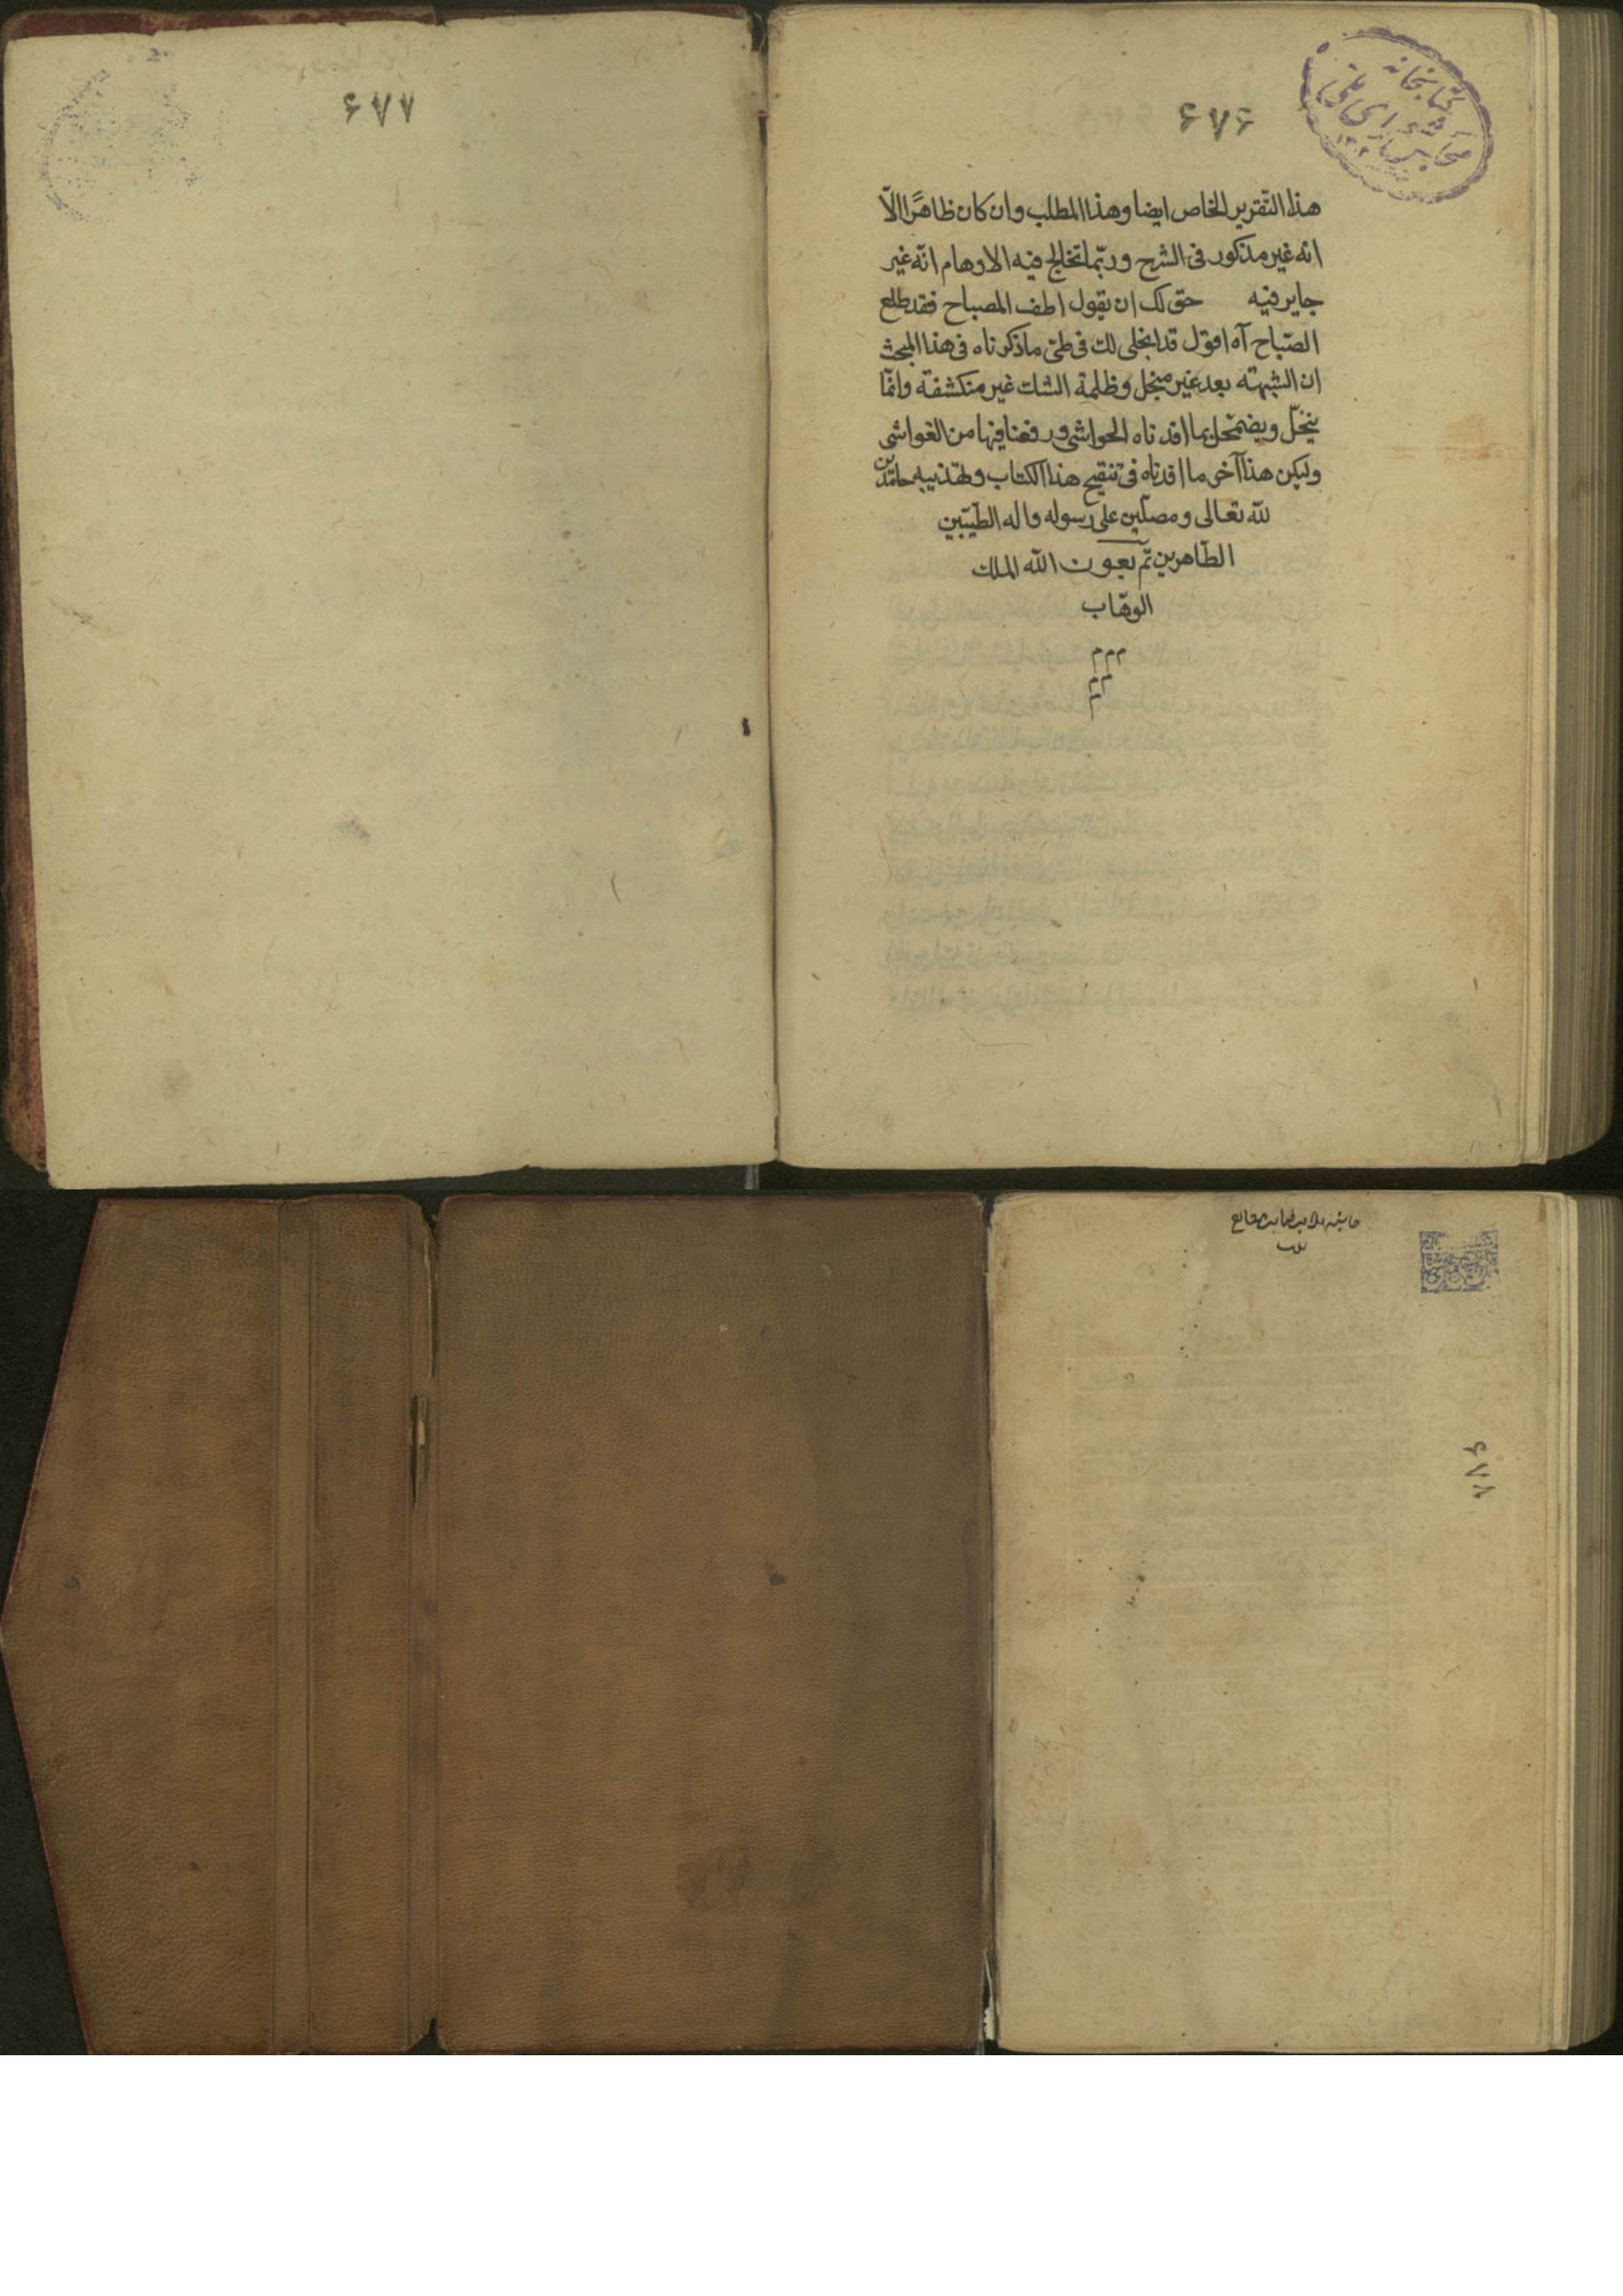 کتابخانه
مجلس شورای ملی
۱۳۰۲
۶۷۶
هذا التقرير الخاص ايضا وهذا المطلب وان كان ظاهرًا الّا
انه غير مذكور فى الشرح وربّما تخالج فيه الاوهام انّه غير
جاير فيه حق لك ان يقول اطف المصباح فقد طلع
الصّباح آه اقول قد انجلى لك فى طىّ ما ذكرناه فى هذا المبحث
ان الشبهته بعد غير منجل وظلمة الشك غير منكشفة وانّما
ينحلّ ويضمحل بما افدناه الحواشى ورفعنا فيها من الغواشى
وليكن هذا آخر ما افدناه فى تنقيح هذا الكتاب وتهذيبه حامدين
للّه تعالى ومصلّين على رسوله واله الطيّبين
الطّاهرين تمّ بعون اللّه الملك
الوهّاب
م م م
م م
م
۶۷۷
۶۷۸